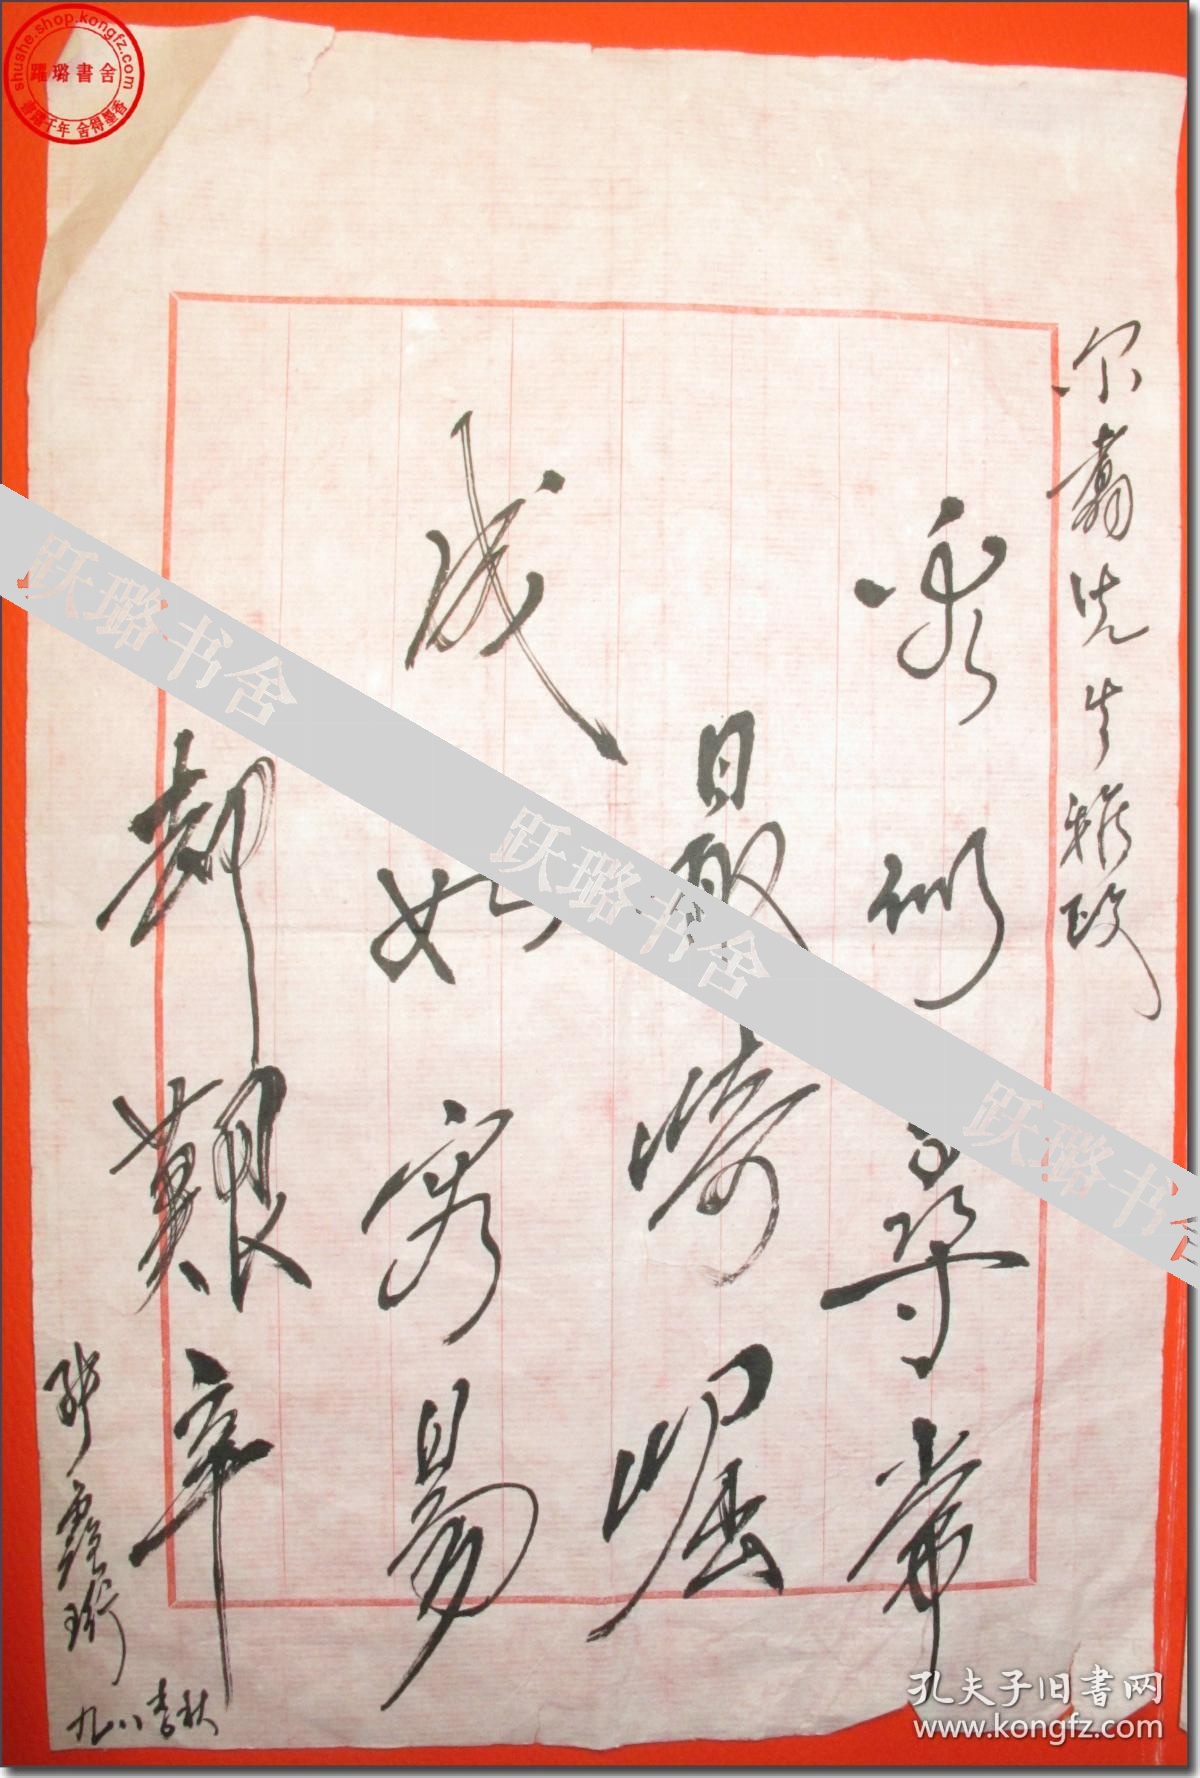 尔翥先生雅政
看似寻常
最崎崛
成如容易
却艰辛
九八春秋
shushe.shop.kongfz.com
躍璐書舍
書躍千年 舍得墨香
跃璐书舍
跃璐书舍
跃璐书舍
孔夫子旧书网
www.kongfz.com